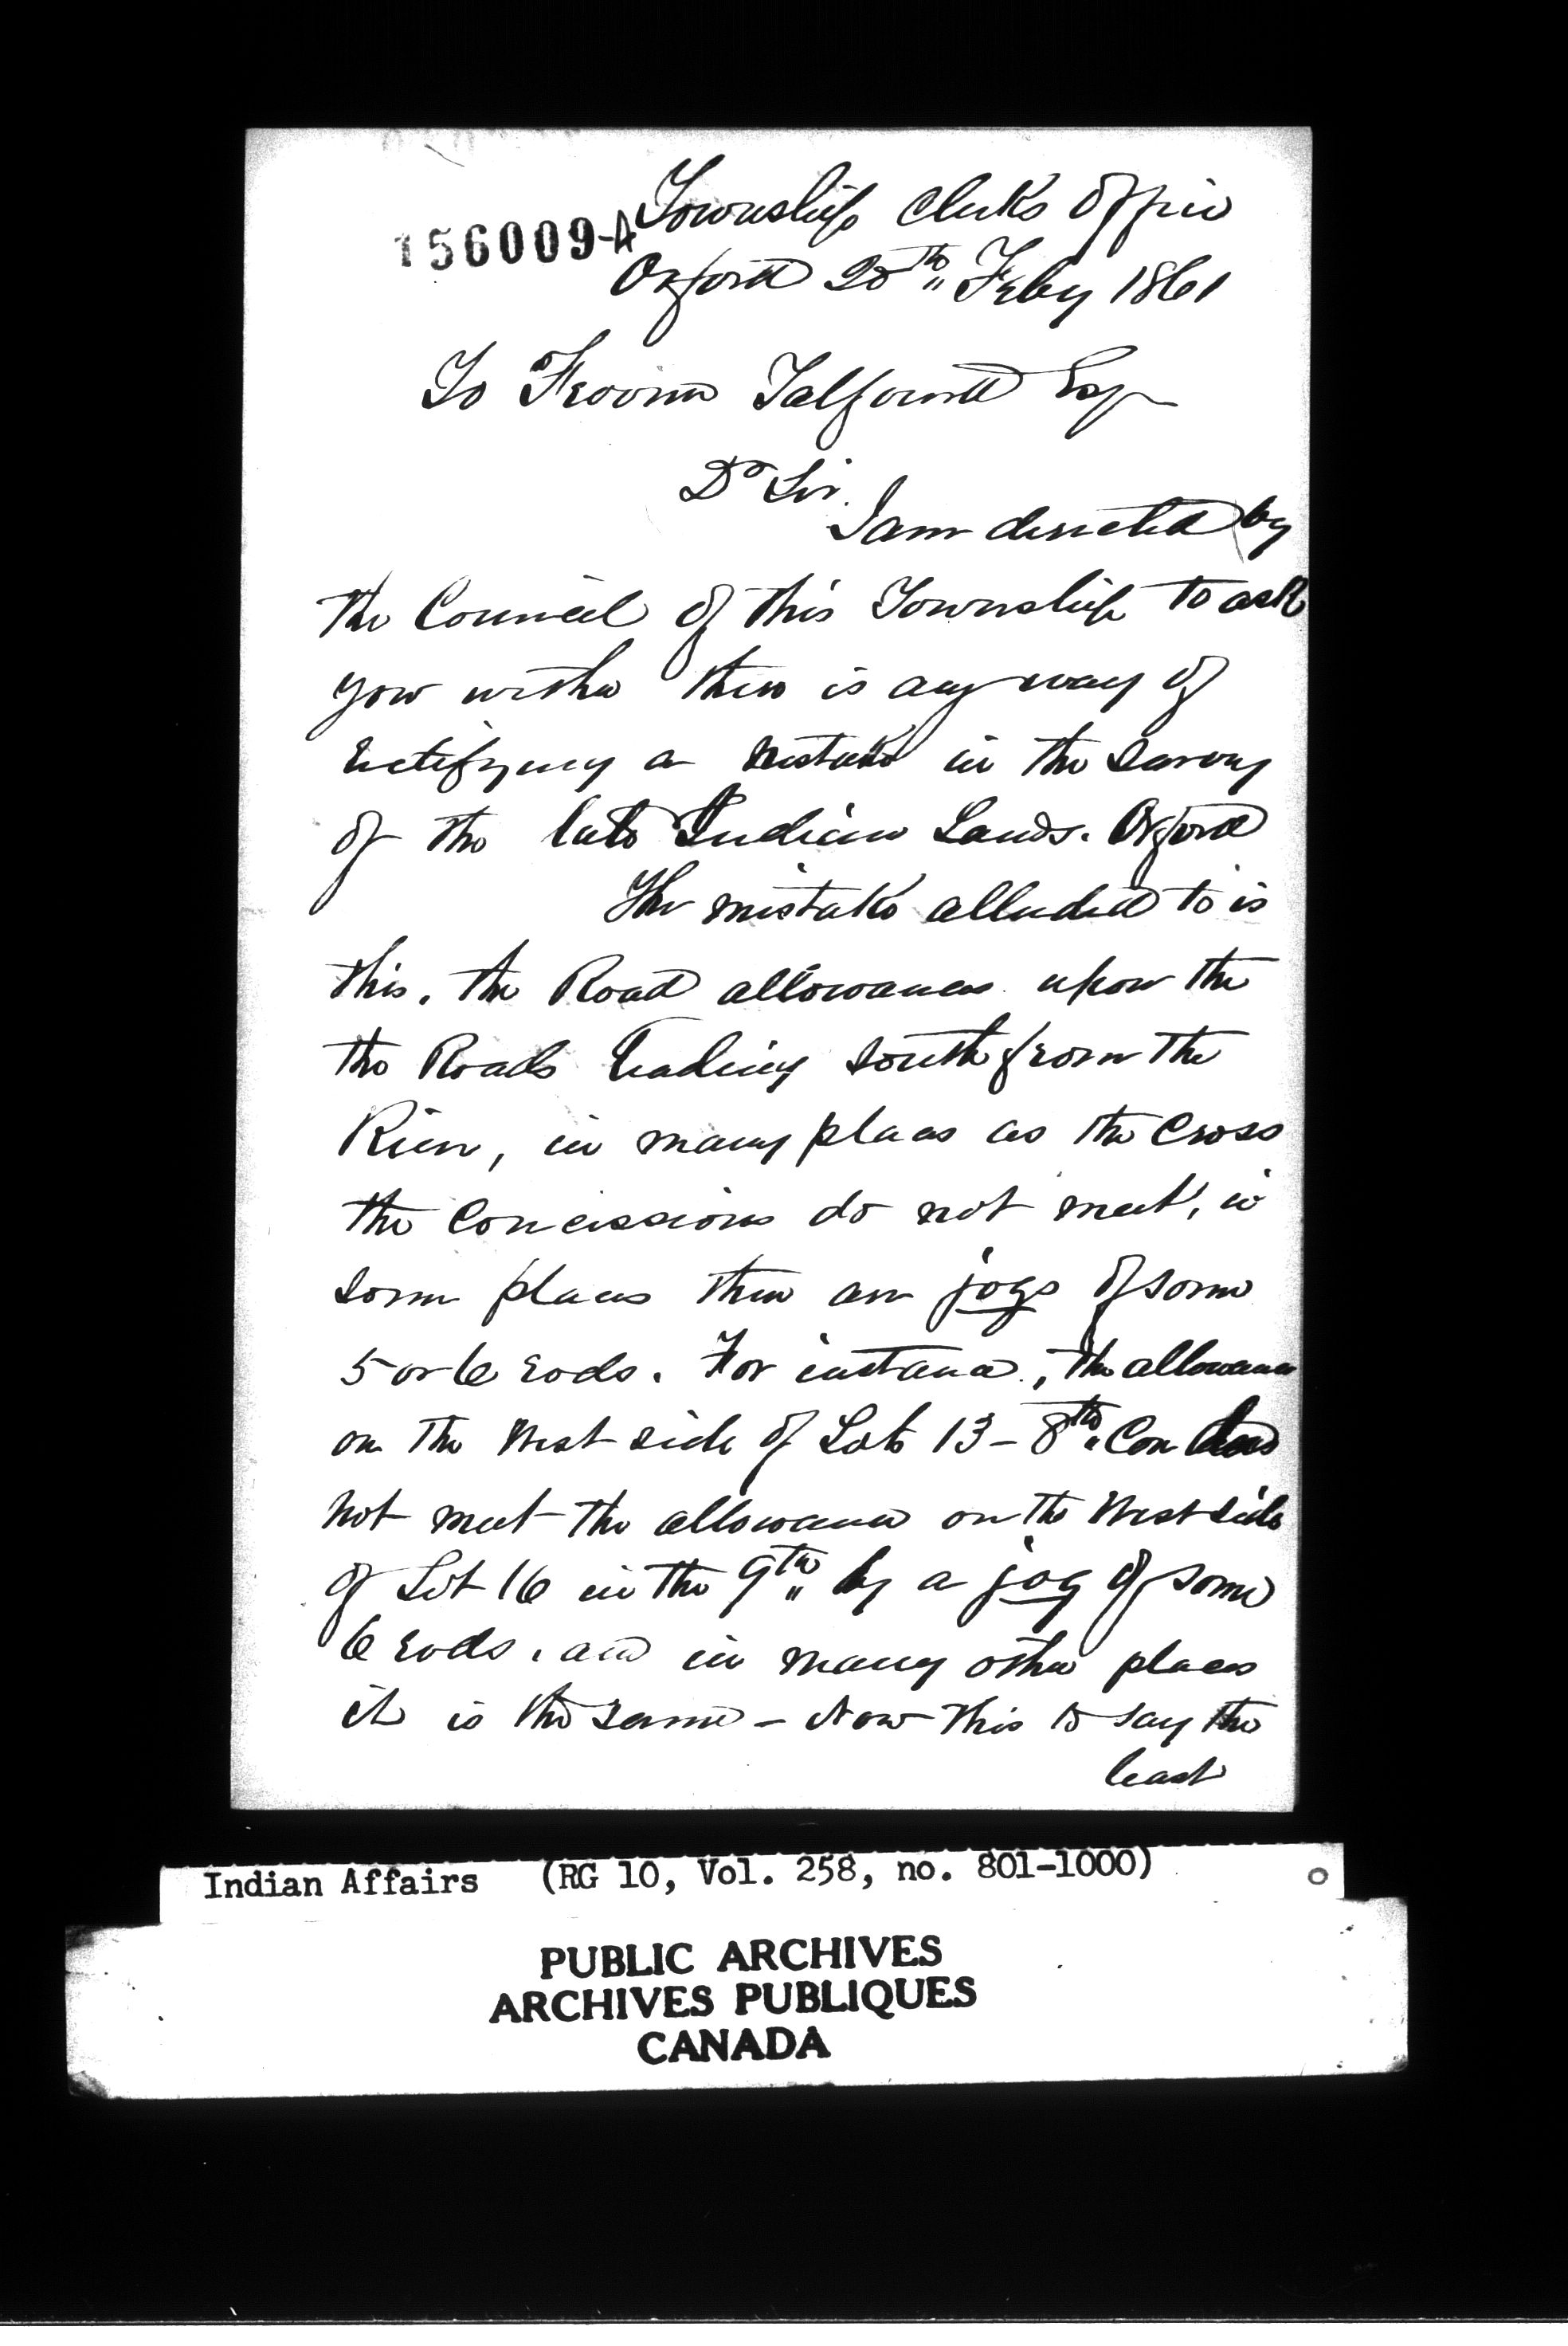 156009-A
Township Clerks Office
Orford 25th Feby 1861
To Froome Talfourd Esq
Dr Sir.
I am directed by
the Council of this Township to ask
you wether there is any way of
rectifying a mistake in the Survey
of the late Indian Lands. Orford
The mistake alluded to is
this. the Road allowances upon the
the Roads leading south from the
River, in many places as the Cross
the Concissions do not meet, in
some places there are jogs of some
5 or 6 rods. For instance, the allowance
on the West side of Lots 13 - 8th Con does
not meet the allowance on the West side
of Lot 16 in the 9th by a jog of some
6 rods. and in many other places
it is the same - Now this to say the
least
Indian Affairs (RG 10, Vol. 258, no. 801-1000)
PUBLIC ARCHIVES
ARCHIVES PUBLIQUES
CANADA